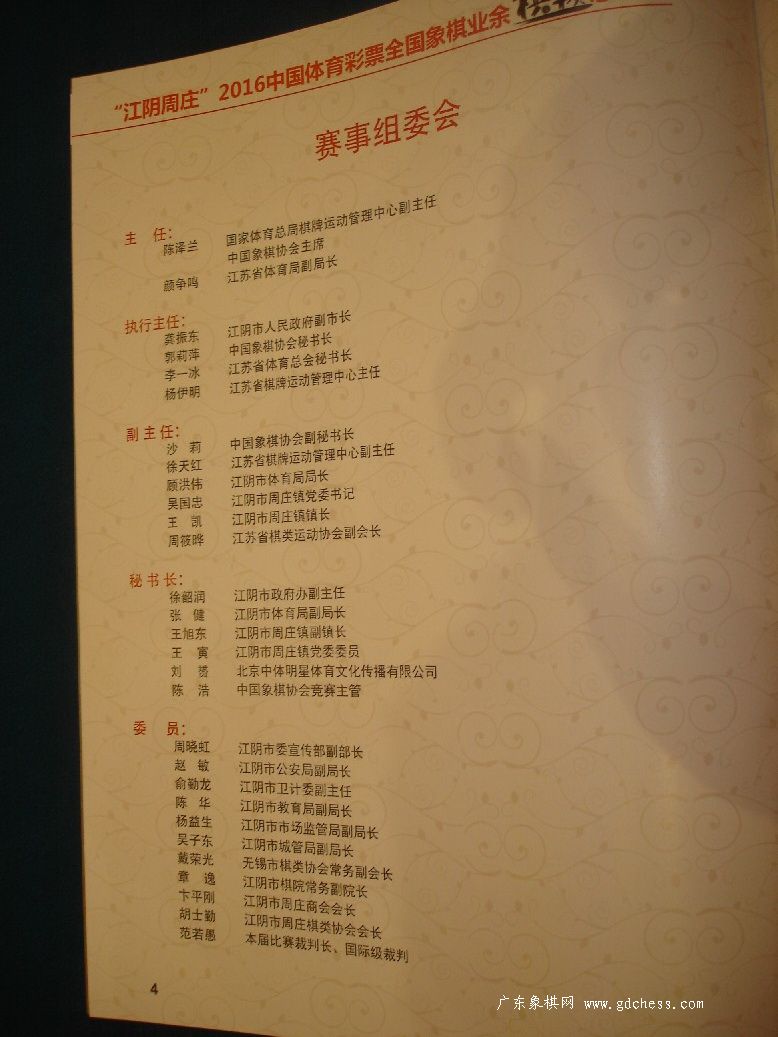 “江阴周庄”2016中国体育彩票全国象棋业余
赛事组委会
主 任：
陈泽兰 国家体育总局棋牌运动管理中心副主任
中国象棋协会主席
颜争鸣 江苏省体育局副局长
执行主任：
龚振东 江阴市人民政府副市长
郭莉萍 中国象棋协会秘书长
李一冰 江苏省体育总会秘书长
杨伊明 江苏省棋牌运动管理中心主任
副 主 任：
沙 莉 中国象棋协会副秘书长
徐天红 江苏省棋牌运动管理中心副主任
顾洪伟 江阴市体育局局长
吴国忠 江阴市周庄镇党委书记
王 凯 江阴市周庄镇镇长
周筱晔 江苏省棋类运动协会副会长
秘 书 长：
徐韶润 江阴市政府办副主任
张 健 江阴市体育局副局长
王旭东 江阴市周庄镇副镇长
王 寅 江阴市周庄镇党委委员
刘 赟 北京中体明星体育文化传播有限公司
陈 浩 中国象棋协会竞赛主管
委 员：
周晓虹 江阴市委宣传部副部长
赵 敏 江阴市公安局副局长
俞勤龙 江阴市卫计委副主任
陈 华 江阴市教育局副局长
杨益生 江阴市市场监管局副局长
吴子东 江阴市城管局副局长
戴荣光 无锡市棋类协会常务副会长
章 逸 江阴市棋院常务副院长
卞平刚 江阴市周庄商会会长
胡士勤 江阴市周庄棋类协会会长
范若愚 本届比赛裁判长、国际级裁判
4
广东象棋网 www.gdchess.com